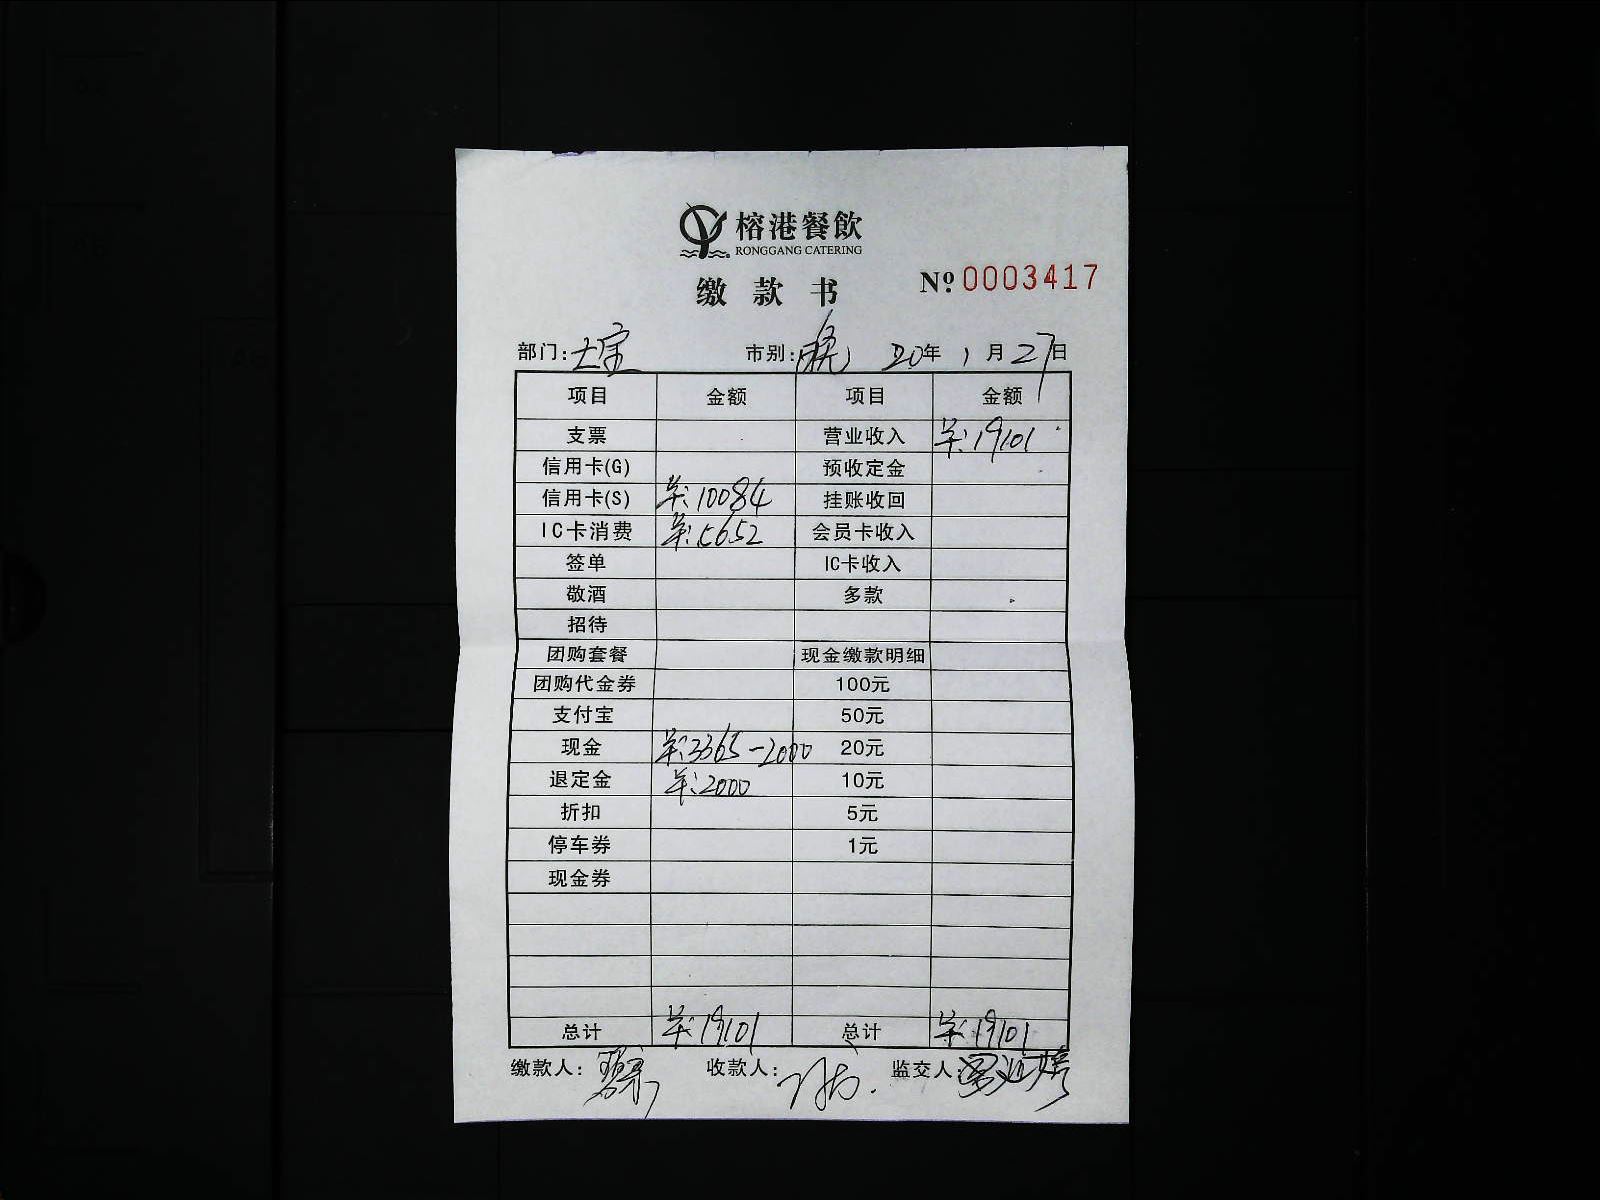 榕港餐飲
RONGGANG CATERING
缴款书 Nº 0003417
部门: 市别: 晚 20年 1月 27日
项目 金额 项目 金额
支票 营业收入 羊:19101
信用卡(G) 预收定金
信用卡(S) 羊:10084 挂账收回
IC卡消费 羊:5652 会员卡收入
签单 IC卡收入
敬酒 多款
招待
团购套餐 现金缴款明细
团购代金券 100元
支付宝 50元
现金 羊:3365-2000 20元
退定金 羊:2000 10元
折扣 5元
停车券 1元
现金券
总计 羊:19101 总计 羊:19101
缴款人: 收款人: 监交人: